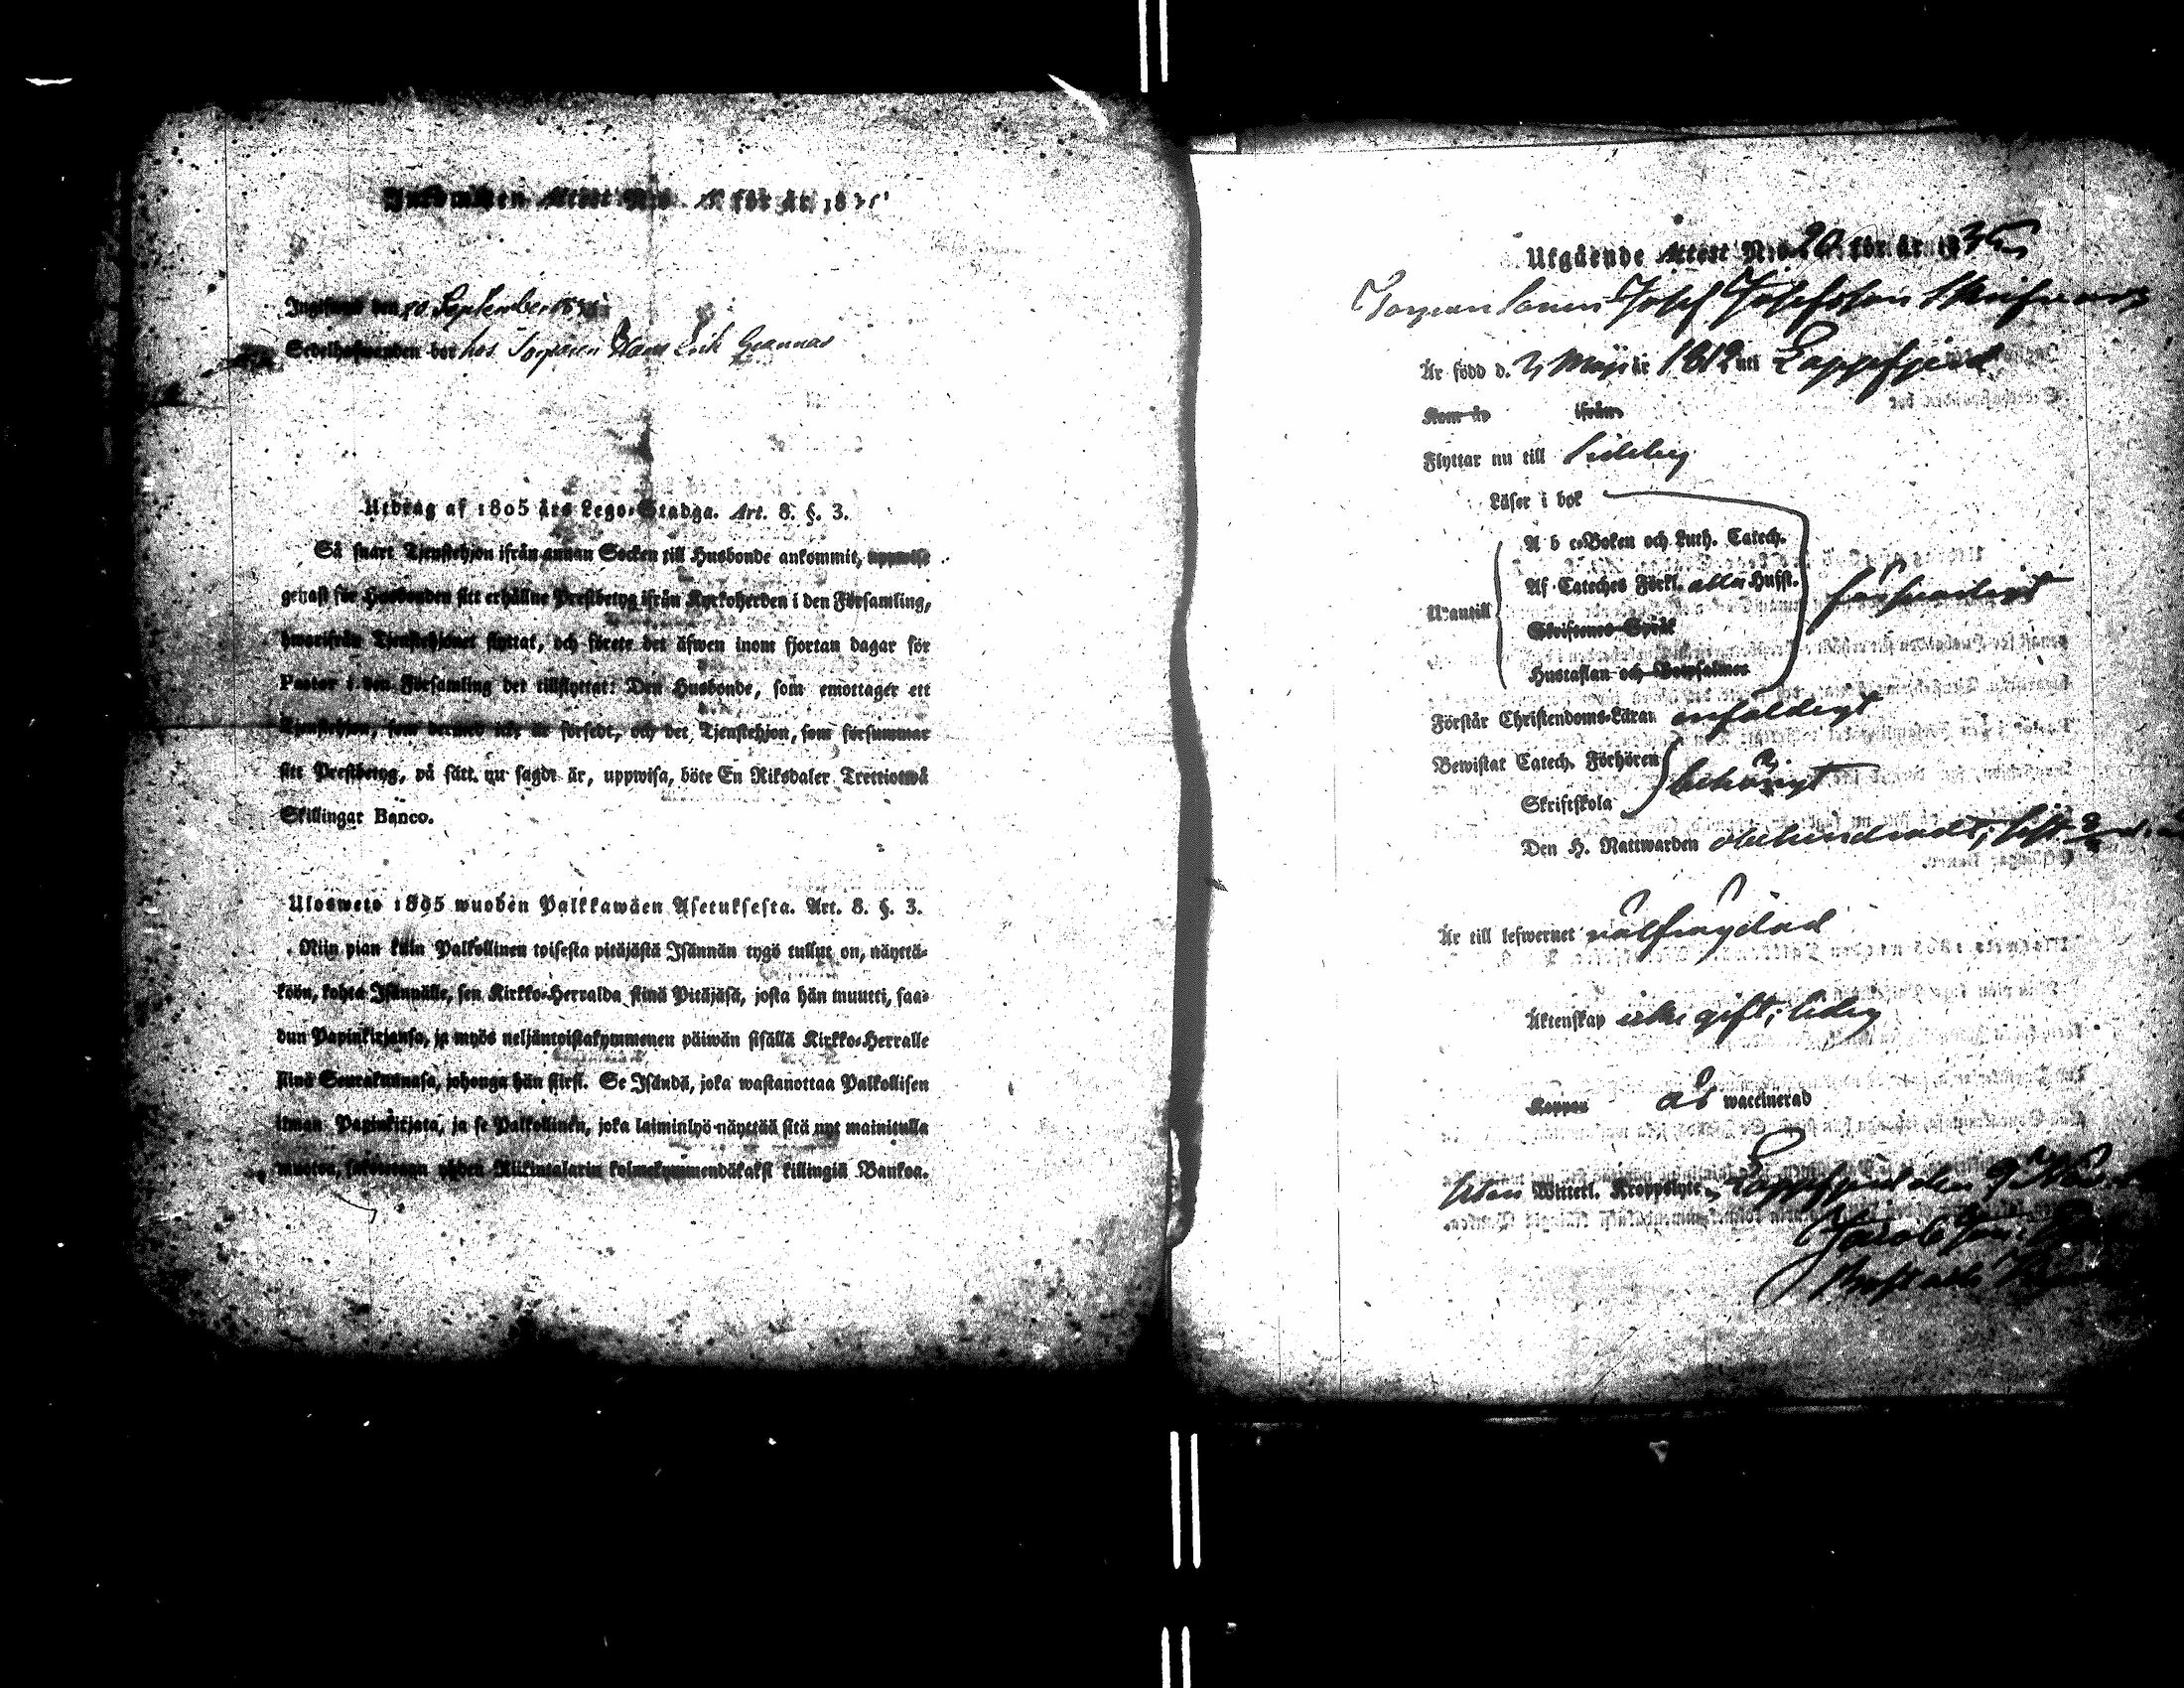 Inkommen Attest N:o för år 18
Ingifwen den 20 September
Sedelhafwanden bor hos Torparen Hans Erik Grannas
Utdrag af 1805 års Lego-Stadga. Art. 8. §. 3.
Så snart Tjenstehjon ifrån annan Socken till Husbonde ankommit, uppwise
genast för Husbonden sitt erhållne Prestbetyg ifrån Kyrkoherden i den Församling,
hwarifrån Tjenstehjonet flyttat, och förete det äfwen inom fjortan dagar för
Pastor i den Församling det tillflyttat: Den Husbonde, som emottager ett
Tjenstehjon, som dermed icke är försedt, och det Tjenstehjon, som försummar
sitt Prestbetyg, på sätt nu sagdt är, uppwisa, böte En Riksdaler Trettiotwå
Skillingar Banco.
Ulosweto 1805 wuoden Palkkawäen Asetuksesta. Art. 8. §. 3.
Niin pian kuin Palkollinen toisesta pitäjästä Isännän tygö tullut on, näyttä-
köön, kohta Isännälle, sen Kirkko-Herralda siinä Pitäjäsä, josta hän muutti, saa-
dun Papinkirjansa, ja myös neljäntoistakymmenen päiwän sisällä Kirkko-Herralle
siinä Seurakunnasa, johonga hän siirsi. Se Isändä, joka wastanottaa Palkollisen
ilman Papinkirjata, ja se Palkollinen, joka laiminlyö näyttää sitä nyt mainitulla
muotoa, sakotetaan yhden Riikintalarin kolmekymmendäkaksi killingiä Bankoa.
Utgående Attest N:o 20 för år 1835
Torparesonen Josef Josefsson
Är född d. Maji år 1812 uti Lappfjerd
Kom år ifrån
Flyttar nu till Sideby
Läser i bok
A b c-Boken och Luth. Catech.
Af Cateches Förkl. alla Husst.
Utantill försvarligt
Skriftenes Språk
Hustaflan och Botpsalmer
Förstår Christendoms-Läran enfaldigt
Bewistat Catech. Förhören
behörigt
Skriftskola
Den H. Nattwarden obehindradt, sist
Är till lefwernet välfrägdad
Äktenskap icke gift; ledig
Koppor är waccinerad
Utan Witterl. Kroppslyte. Lappfjerd den 9 Nov.
Jacob